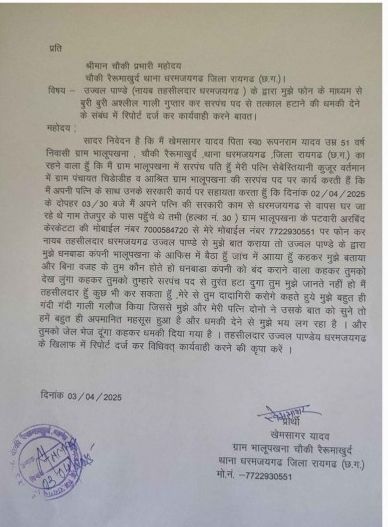 प्रति
श्रीमान चौकी प्रभारी महोदय
चौकी रैरूमाखुर्द थाना धरमजयगढ जिला रायगढ (छ.ग.)।
विषय – उज्वल पाण्डे (नायब तहसीलदार धरमजयगढ ) के द्वारा मुझे फोन के माध्यम से
बुरी बुरी अश्लील गाली गुप्तार कर सरपंच पद से तत्काल हटाने की धमकी देने
के संबंध में रिपोर्ट दर्ज कर कार्यवाही करने बावत।
महोदय :
सादर निवेदन है कि मैं खेमसागर यादव पिता स्व0 रूपनराम यादव उम्र 51 वर्ष
निवासी ग्राम भालूपखना , चौकी रैरूमाखुर्द ,थाना धरमजयगढ ,जिला रायगढ (छ.ग.) का
रहने वाला हुँ कि मैं ग्राम भालूपखना में सरपंच पति हुँ मेरी पत्नि सेबेस्तियानी कुजूर वर्तमान
में ग्राम पंचायत चिडोडीह व आश्रित ग्राम भालूपखना की सरपंच पद पर कार्य करती हैं कि
मैं अपनी पत्नि के साथ उनके सरकारी कार्य पर सहायता करता हुँ कि दिनांक 02/04/2025
के दोपहर 03/30 बजे मैं अपने पत्नि की सरकारी काम से धरमजयगढ से वापस घर जा
रहे थे गाम तेजपुर के पास पहुँचे थे तभी (हल्का नं. 30 ) ग्राम भालूपखना के पटवारी अरबिंद
केरकेटटा की मोबाईल नंबर 7000584720 से मेरे मोबाईल नंबर 7722930551 पर फोन कर
नायब तहसीलदार धरमजयगढ उज्वल पाण्डे से मुझे बात कराया तो उज्वल पाण्डे के द्वारा
मुझे धनबाडा कंपनी भालूपखना के आफिस में बैठा हुँ जांच में आाया हुँ कहकर मुझे बताया
और बिना वजह के तुम कौन होते हो धनबाडा कंपनी को बंद कराने वाला कहकर तुमको
देख लुंगा कहकर तुमको तुम्हारे सरपंच पद से तुरंत हटा दुंगा तुम मुझे जानते नहीं हो मैं
तहसीलदार हुँ कुछ भी कर सकता हुँ ,मेरे से तुम दादागिरी करोगे कहते हुये मुझे बहुत ही
गंदी गंदी गाली गलौज किया जिससे मुझे और मेरी पत्नि दोनो ने उसके बात को सुने तो
हमें बहुत ही अपमानित महसूस हुआ है और धमकी देने से मुझे भय लग रहा है । और
तुमको जेल भेज दूंगा कहकर धमकी दिया गया है । तहसीलदार उज्वल पाण्डेय धरमजयगढ
के खिलाफ में रिपोर्ट दर्ज कर विधिवत् कार्यवाही करने की कृपा करें ।
दिनांक 03/04/2025
खेमसागर
प्रार्थी
खेमसागर यादव
ग्राम भालूपखना चौकी रैरूमाखुर्द
थाना धरमजयगढ जिला रायगढ (छ.ग.)
मो.नं. –7722930551